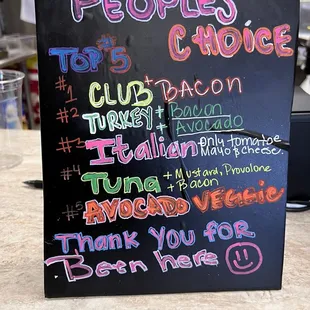 PEOPLES
CHOICE
TOP 5
#1 CLUB + BACON
#2 TURKEY + Bacon
+ Avocado
#3 Italian only tomatoe
Mayo & cheese
#4 Tuna + Mustard, Provolone
+ Bacon
#5 AVOCADO VEGGIE
THANK YOU FOR
Been here